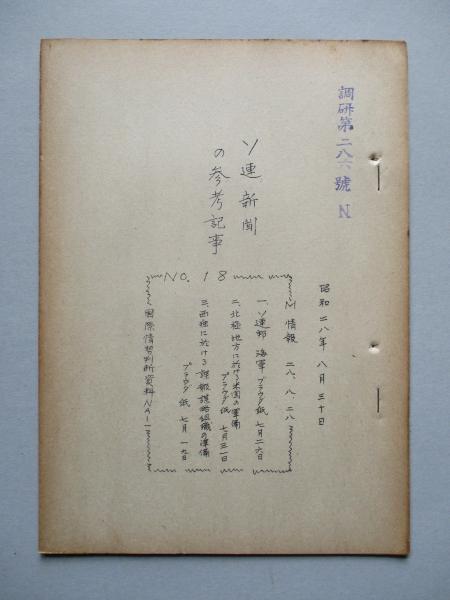 調研第二八六號 N
昭和二八年八月三十日
ソ連新聞
の参考記事
NO. 18
M情報 二八、八、二八
一、ソ連邦 海軍 プラウダ紙 七月二六日
二、北極地方に於ける米国の軍備
プラウダ紙 七月三一日
三、西独に於ける諜報謀略組織の準備
プラウダ紙 七月一九日
国際情勢判断資料NA-1